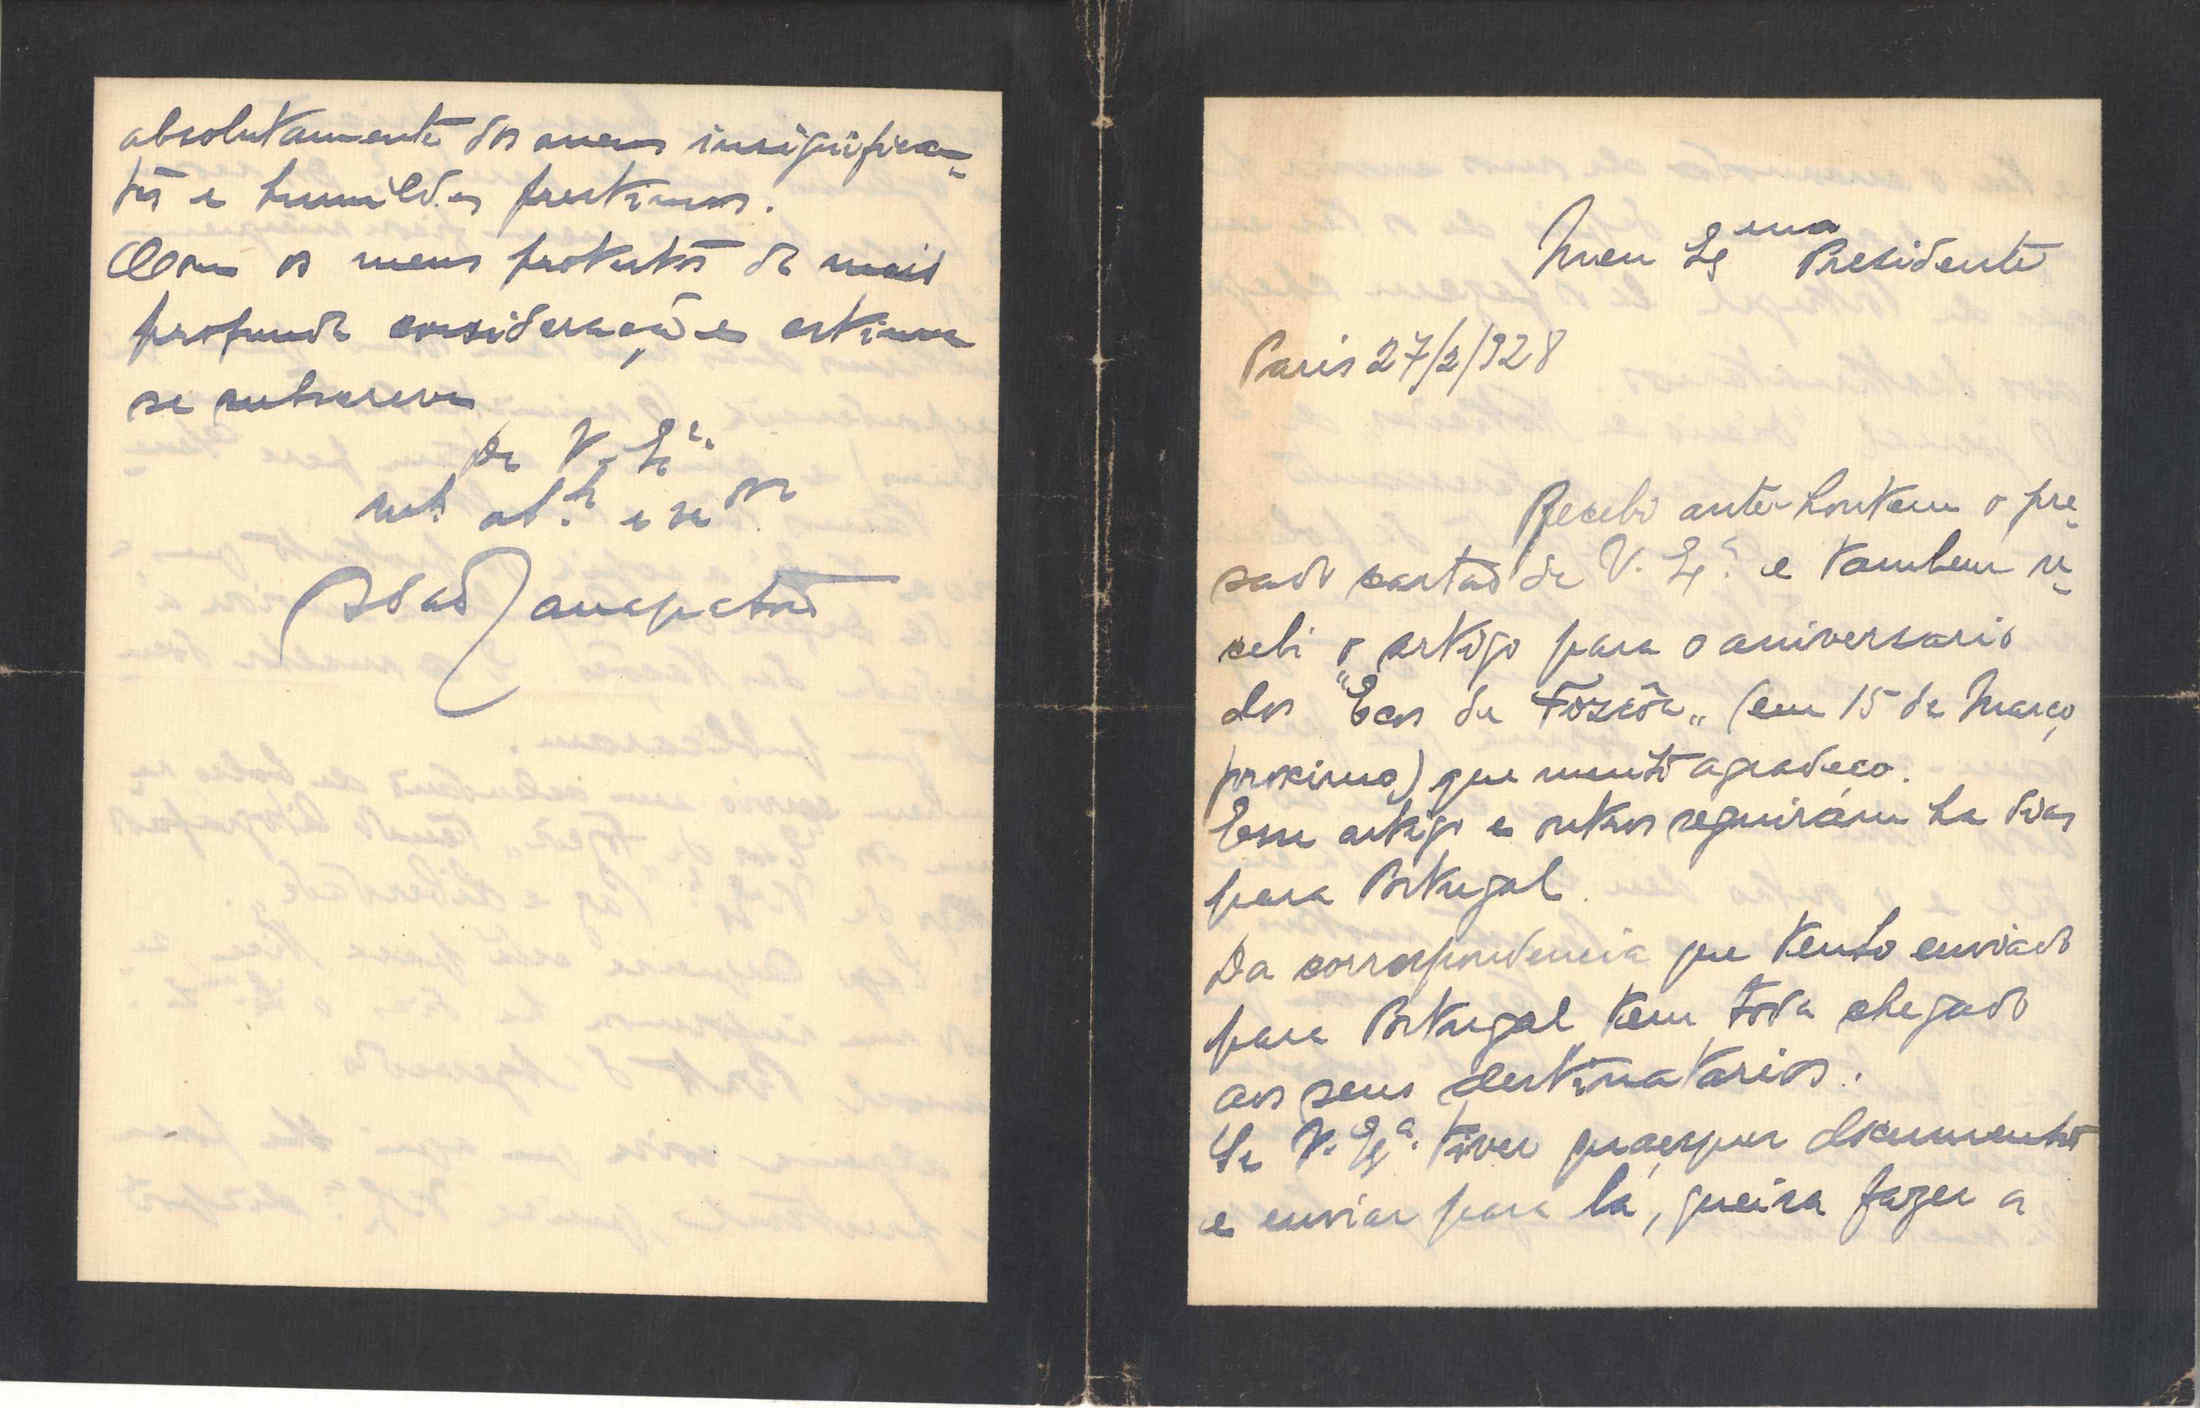 absolutamente dos meus insignifican-
tes e humildes prestimos.
Com os meus protestos da mais
profunda consideração e estima
se subscreve
De V. Exª.
at.
Meu Exmo Presidente
Paris 27/2/928
Recebi ante-hontem o pre-
sado cartão de V. Exª. e tambem re-
cebi o artigo para o aniversario
dos "Ecos de Fozcôa" (em 15 de Março,
proximo) que muito agradeço.
Esse artigo e outros seguirám ha dias
para Portugal.
Da correspondencia que tenho enviado
para Portugal tem toda chegado
aos seus destinatarios.
Se V. Exª. tiver quaesquer documentos
a enviar para lá, queira fazer a